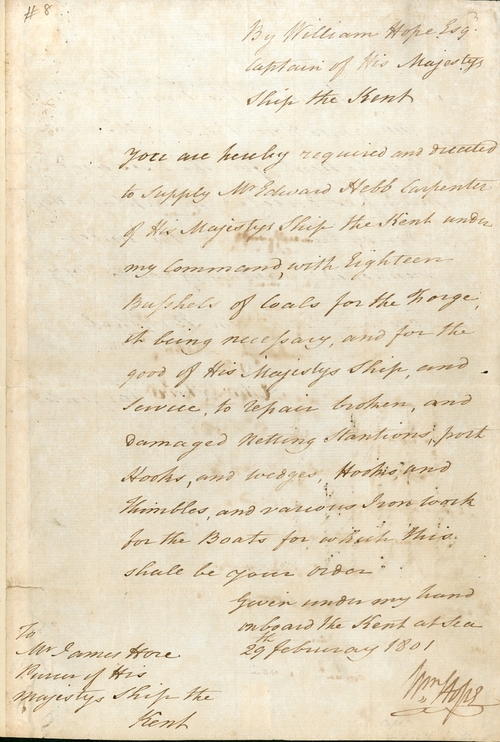 # 8
By William Hope Esq.
Captain of His Majestys
Ship the Kent
You are hereby required and directed
to supply Mr Edward Hebb Carpenter
of His Majestys Ship the Kent under
my Command, with Eighteen
Bushels of Coals for the Forge,
it being necessary, and for the
good of His Majestys Ship, and
Service, to repair broken, and
damaged Netting Stantions, port
Hooks, and wedges, Hooks, and
Thimbles, and various Iron work
for the Boats for which this
shall be your order
Given under my hand
onboard the Kent at Sea
29th February 1801
Wm Hope
To
Mr James Hore
Purser of His
Majestys Ship the
Kent